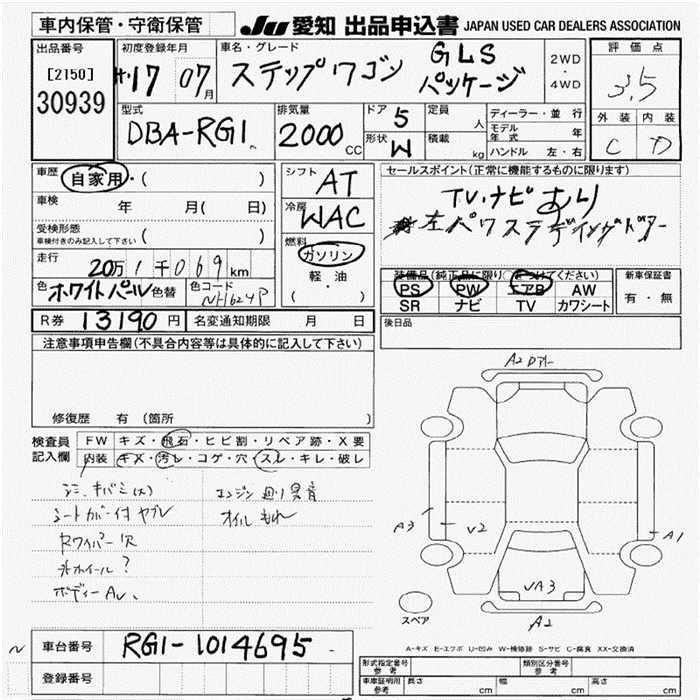 車内保管・守衛保管
JU 愛知 出品申込書 JAPAN USED CAR DEALERS ASSOCIATION
出品番号
[2150]
30939
初度登録年月
17 07月
車名・グレード
ステップワゴン GLS
パッケージ
2WD
・
4WD
評価点
3.5
外装 内装
C D
型式
DBA-RG1
排気量
2000 CC
ドア 5
形状 W
定員 人
積載 kg
ディーラー・並行
モデル年式 年
ハンドル 左・右
車歴 自家用・( )
車検 年 月( 日)
受検形態
車検付きのみ記入して下さい ( )
走行 20万1千069km
色 ホワイトパール 色替 色コード NH624P
シフト AT
冷房 WAC
燃料
ガソリン
軽・油
( )
セールスポイント(正常に機能するものに限ります)
TV.ナビあり
左パワスラディングドアー
装備品(純正品に限り○をつけてください)
PS PW エアB AW
SR ナビ TV カワシート
新車保証書
有・無
R券 13190円 名変通知期限 月 日
後日品
注意事項申告欄(不具合内容等は具体的に記入して下さい)
修復歴 有(箇所
検査員
記入欄
FW キズ・飛石・ヒビ割・リペア跡・X要
内装 キズ・汚レ・コゲ・穴・スレ・キレ・破レ
シミ、キバミ(大)
シートカバー付ヤブレ
エンジン廻り異音
オイルもれ
Rワイパー
外ホイール?
ボディーAU、
A2Dアリー
A3
V2
A1
VA3
A2
スペア
A-キズ E-エクボ U-凹み W-補修跡 S-サビ C-腐食 XX-交換済
車台番号 RG1-1014695
登録番号
形式指定番号
参考
類別区分番号
参考
車庫証明用
参考
長さ cm 幅 cm 高さ cm